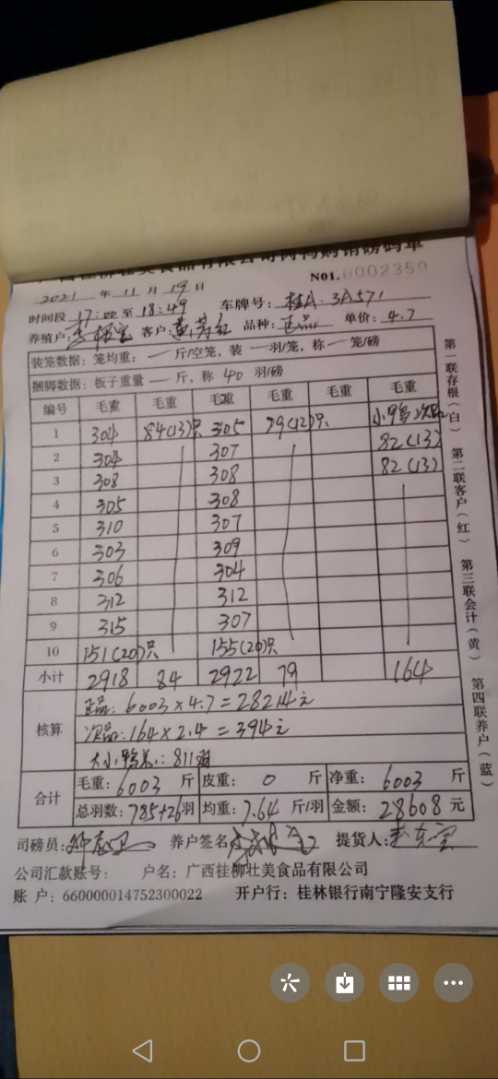 食品有限公司肉鸭购销磅码单
NO1.0002350
2021 年 11 月 19 日
时间段 17: 至 18:49 车牌号: 桂A·3A571
养殖户: 客户: 品种: 正品 单价: 4.7
装笼数据: 笼均重: — 斤/空笼, 装 — 羽/笼, 称 — 笼/磅
捆脚数据: 板子重量 — 斤, 称 40 羽/磅
编号 毛重 毛重 毛重 毛重 毛重 毛重
1 304 84(13)只 305 79(12)只 小鸭 次品
2 304 307 82(13)
3 308 308 82(13)
4 305 308
5 310 307
6 303 309
7 306 304
8 312 312
9 315 307
10 151(20)只 155(20)只
小计 2918 84 2922 79 164
核算
正品: 6003×4.7=28214元
次品: 164×2.4=394元
大小鸭: 811羽
合计
毛重: 6003 斤 皮重: 0 斤 净重: 6003 斤
总羽数: 785+26羽 均重: 7.64 斤/羽 金额: 28608 元
司磅员: 养户签名: 提货人:
公司汇款账号: 户名: 广西桂柳壮美食品有限公司
账 户: 660000014752300022 开户行: 桂林银行南宁隆安支行
第一联存根(白) 第二联客户(红) 第三联会计(黄) 第四联养户(蓝)